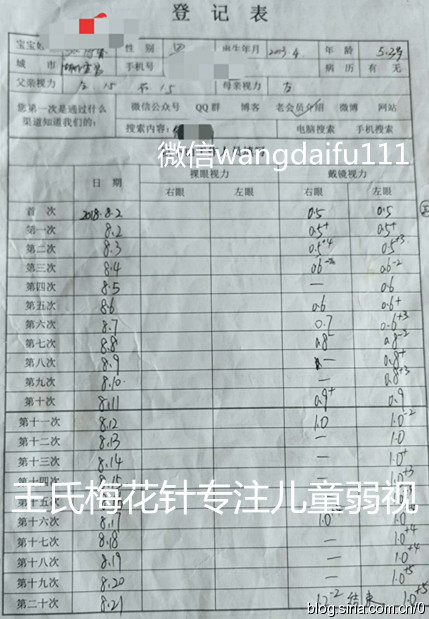 登记表
宝宝姓 性别 出生年月 2013.4. 年龄 5.3
城市 手机号 病历 有 无
父亲视力 左 1.5 右 1.5 母亲视力
您第一次是通过什么 微信公众号 QQ群 博客 老会员介绍 微博 网站
渠道知道我们的: 搜索内容: 电脑搜索 手机搜索
微信wangdaifu111
日期 裸眼视力 戴镜视力
右眼 左眼 右眼 左眼
首次 2018.8.2 0.5 0.5
第一次 8.2 0.5+ 0.5+
第二次 8.3 0.5+4 0.5+3
第三次 8.4 0.6-2 0.6-2
第四次 8.5 — 0.6
第五次 8.6 0.6 0.6+
第六次 8.7 0.7 0.6+3
第七次 8.8 0.8- 0.8-2
第八次 8.9 — 0.8+
第九次 8.10 — 0.8+3
第十次 8.11 0.9+ 0.9
第十一次 8.12 1.0 1.0-2
第十二次 8.13 — 1.0
第十三次 8.14 — 1.0+
第十四次 8.15 1.0+3
王氏梅花针专注儿童弱视
第十六次 8.17 1.0-2 1.0
第十七次 8.18 — 1.0+4
第十八次 8.19 — 1.0+4
第十九次 8.20 — 1.0+5
第二十次 8.21 1.2-2 结束 1.0+5
blog.sina.com.cn/0